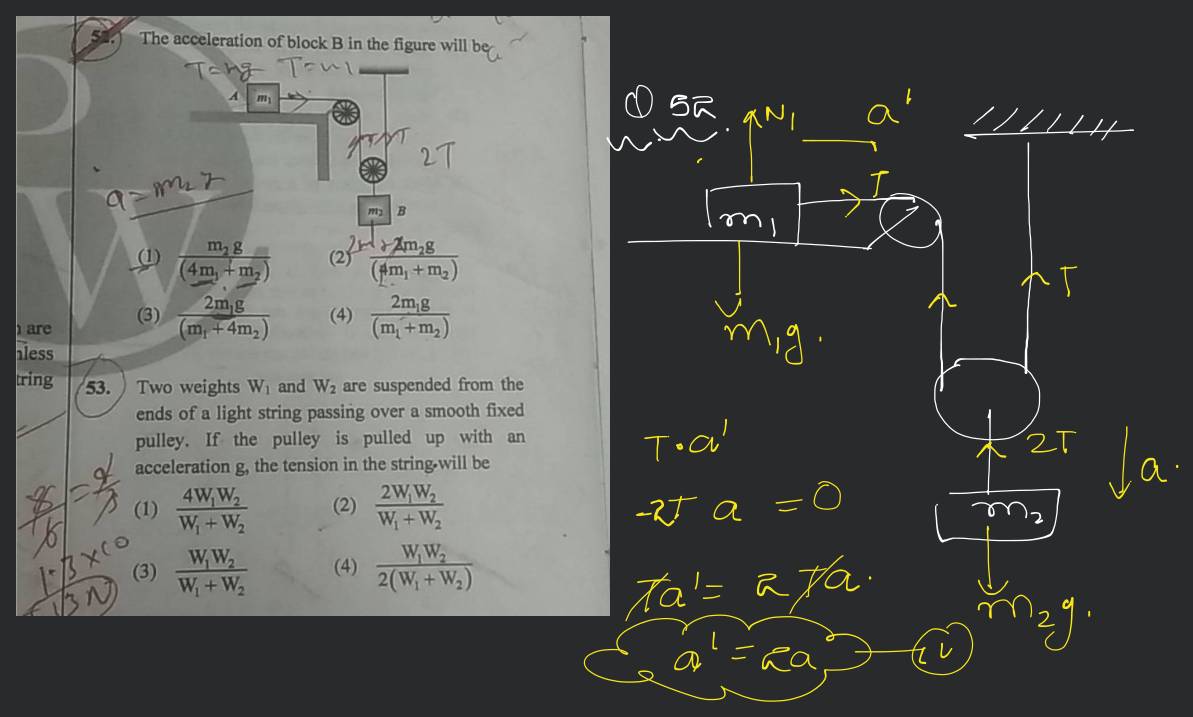 52. The acceleration of block B in the figure will be
T=mg T=m1
A m₁
T
2T
a = m₂g
m₂ B
(1) m₂g / (4m₁ + m₂)
(2) 2m₂g / (4m₁ + m₂)
(3) 2m₁g / (m₁ + 4m₂)
(4) 2m₁g / (m₁ + m₂)
are
nless
tring
53. Two weights W₁ and W₂ are suspended from the
ends of a light string passing over a smooth fixed
pulley. If the pulley is pulled up with an
acceleration g, the tension in the string will be
(1) 4W₁W₂ / W₁ + W₂
(2) 2W₁W₂ / W₁ + W₂
(3) W₁W₂ / W₁ + W₂
(4) W₁W₂ / 2(W₁ + W₂)
1.3×10
① 52.
N₁
a'
T
m₁
m₁g.
T
2T
a.
m₂
m₂g.
T·a'
-2T a = 0
Ta' = 2Ta.
a' = 2a